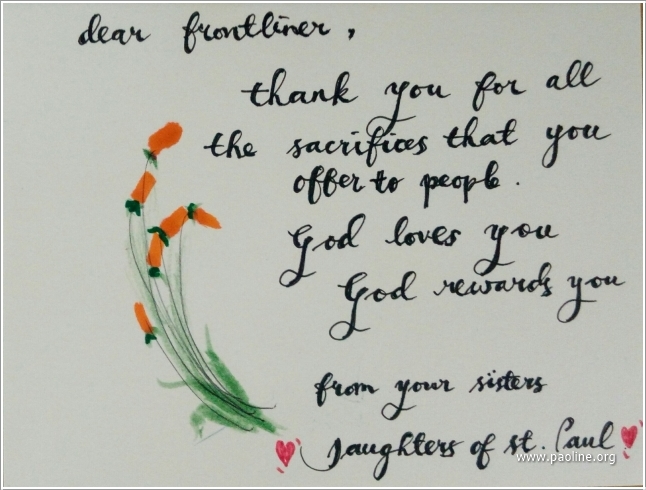 dear frontliner,
thank you for all
the sacrifices that you
offer to people.
God loves you
God rewards you
from your sisters
Daughters of st. Paul
www.paoline.org